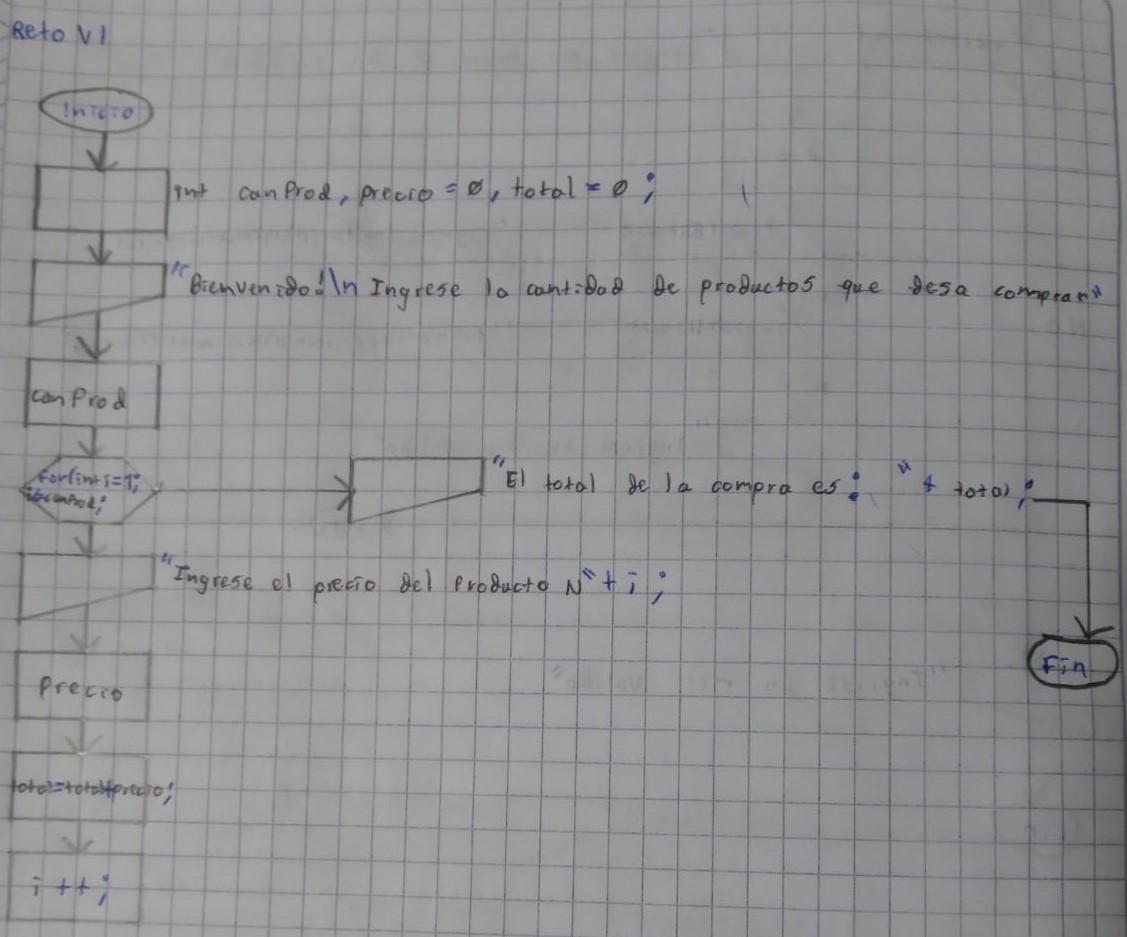 Reto V1
Inicio
int canProd, precio = 0, total = 0;
"Bienvenido!\n Ingrese la cantidad de productos que desa comprar"
canProd
for(int i=1;
canProd;
"El total de la compra es: " + total;
"Ingrese el precio del Producto N" + i;
Fin
Precio
total=total+precio;
i ++;